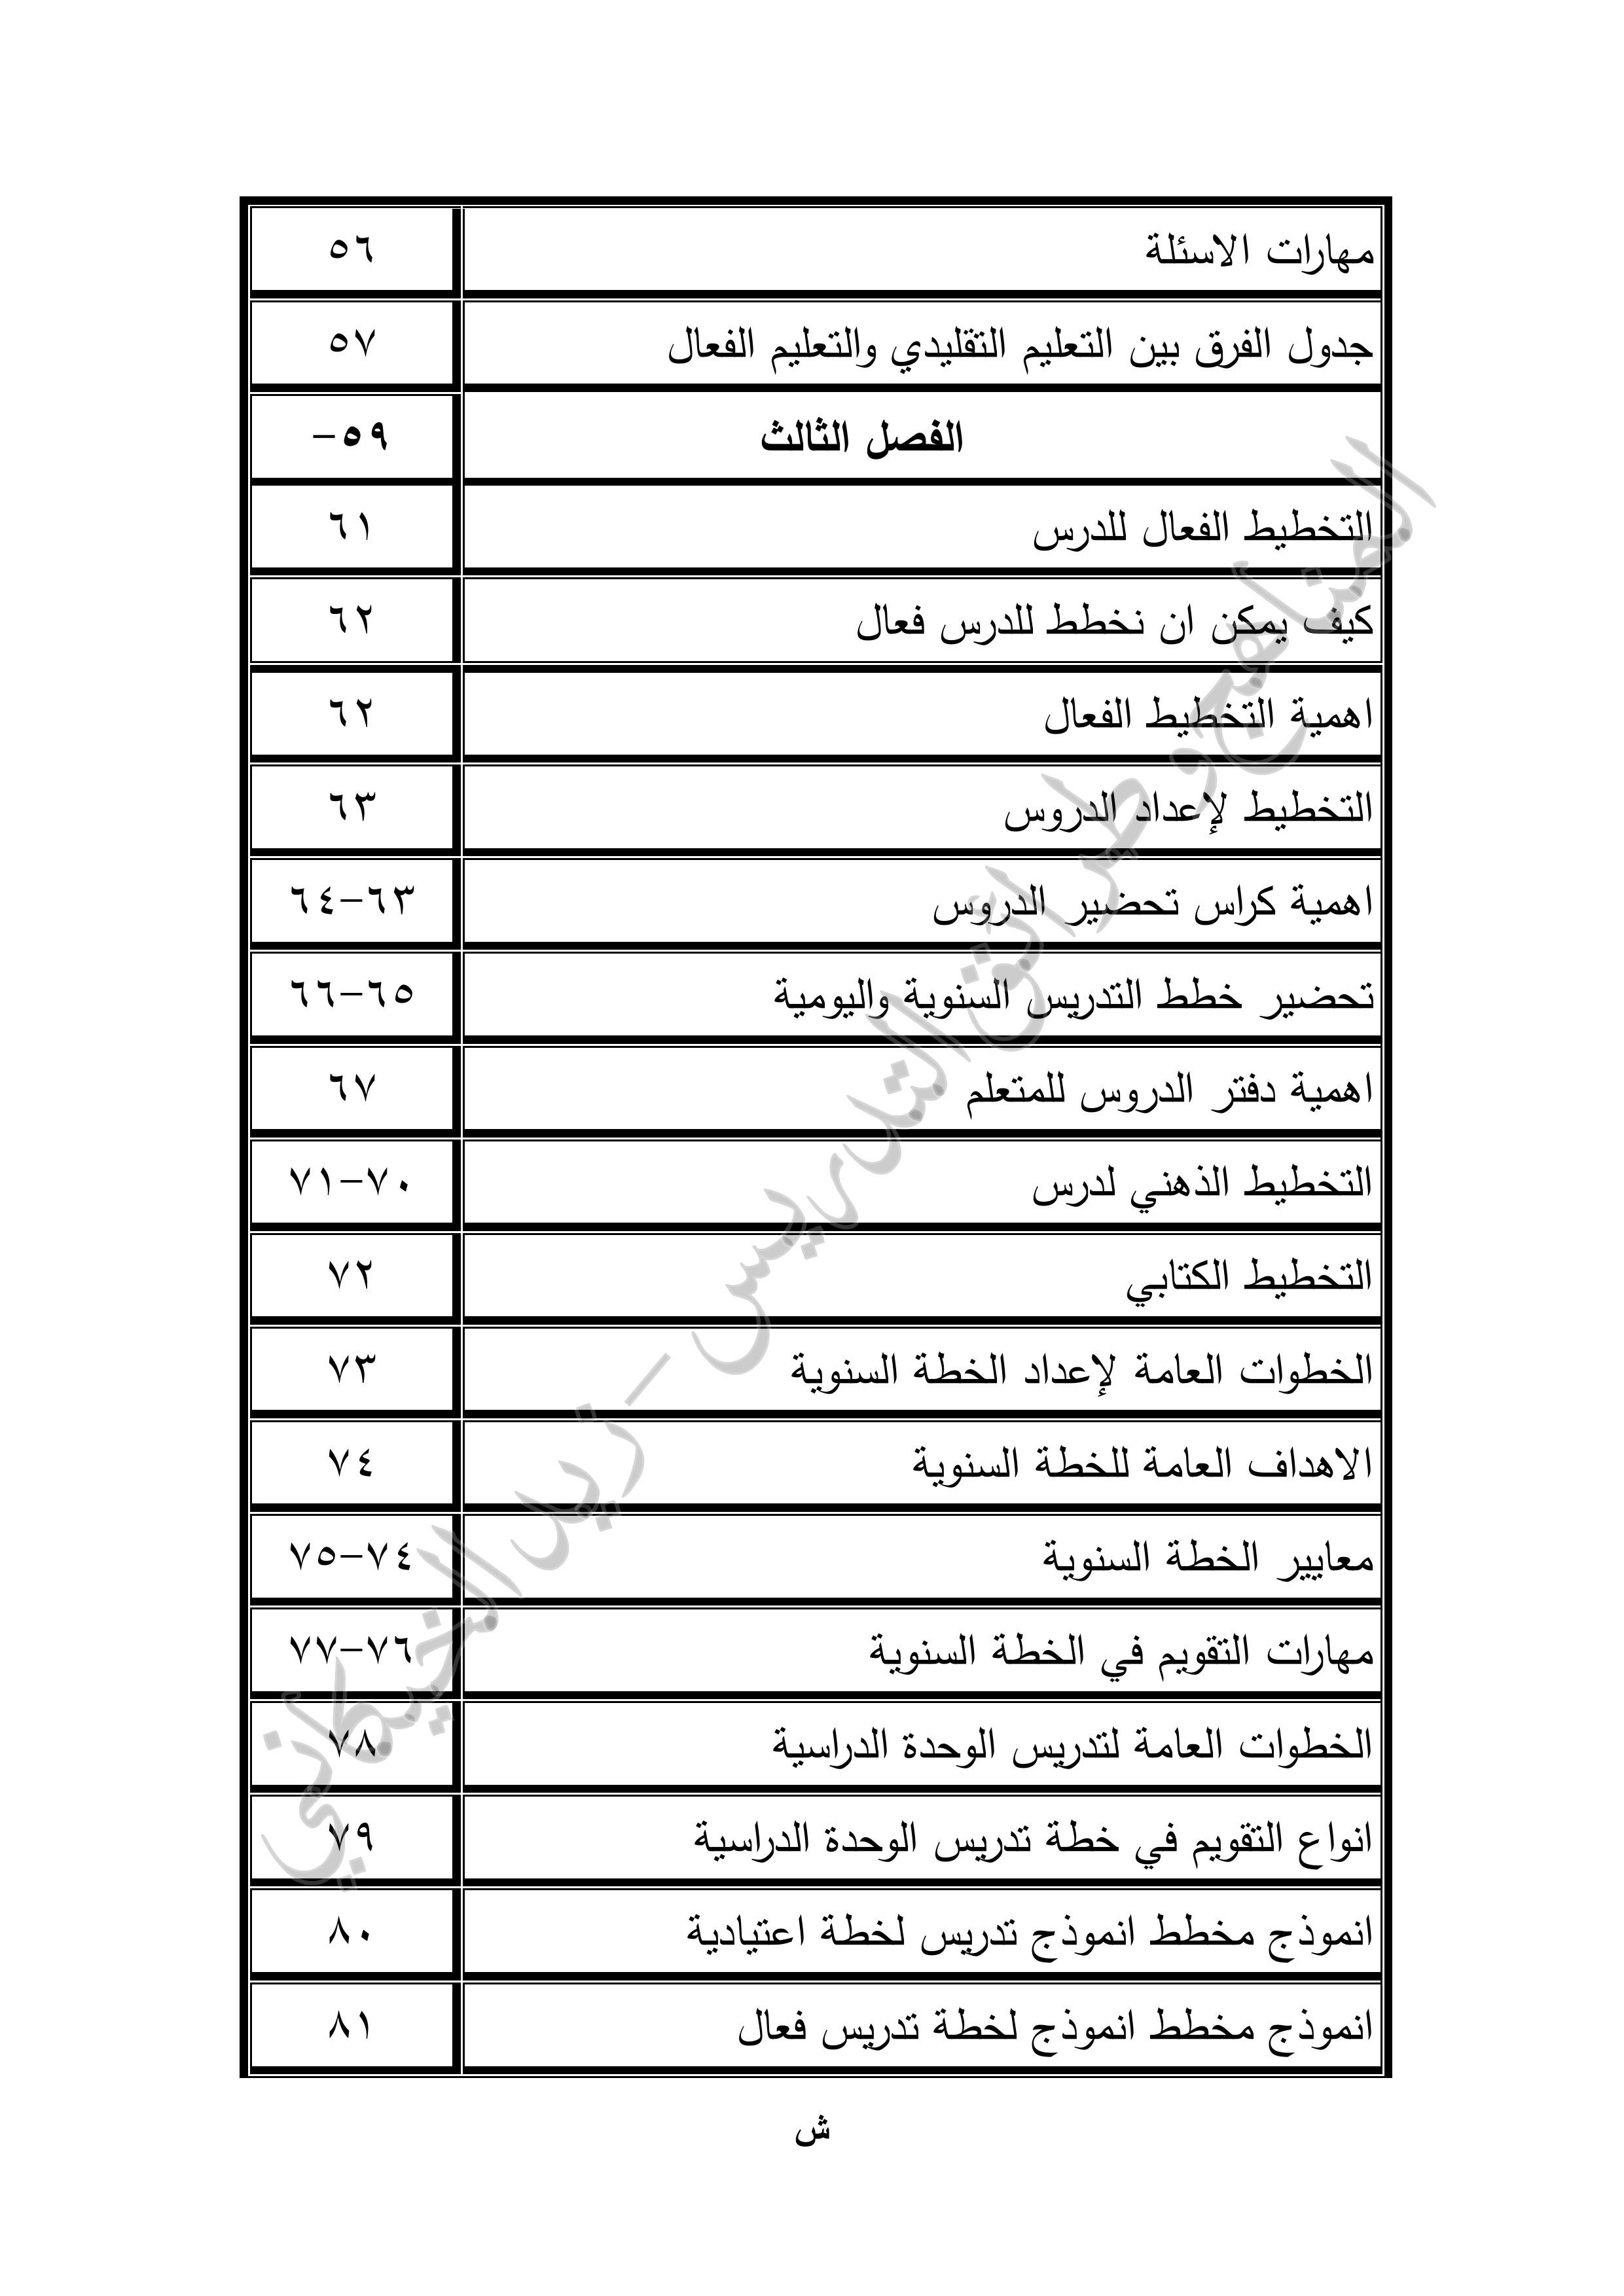 مهارات الاسئلة ٥٦
جدول الفرق بين التعليم التقليدي والتعليم الفعال ٥٧
الفصل الثالث ٥٩-
التخطيط الفعال للدرس ٦١
كيف يمكن ان نخطط للدرس فعال ٦٢
اهمية التخطيط الفعال ٦٢
التخطيط لإعداد الدروس ٦٣
اهمية كراس تحضير الدروس ٦٣-٦٤
تحضير خطط التدريس السنوية واليومية ٦٥-٦٦
اهمية دفتر الدروس للمتعلم ٦٧
التخطيط الذهني لدرس ٧٠-٧١
التخطيط الكتابي ٧٢
الخطوات العامة لإعداد الخطة السنوية ٧٣
الاهداف العامة للخطة السنوية ٧٤
معايير الخطة السنوية ٧٤-٧٥
مهارات التقويم في الخطة السنوية ٧٦-٧٧
الخطوات العامة لتدريس الوحدة الدراسية ٧٨
انواع التقويم في خطة تدريس الوحدة الدراسية ٧٩
انموذج مخطط انموذج تدريس لخطة اعتيادية ٨٠
انموذج مخطط انموذج لخطة تدريس فعال ٨١
ش
المناهج وطرائق التدريس - زيد الخيكاني